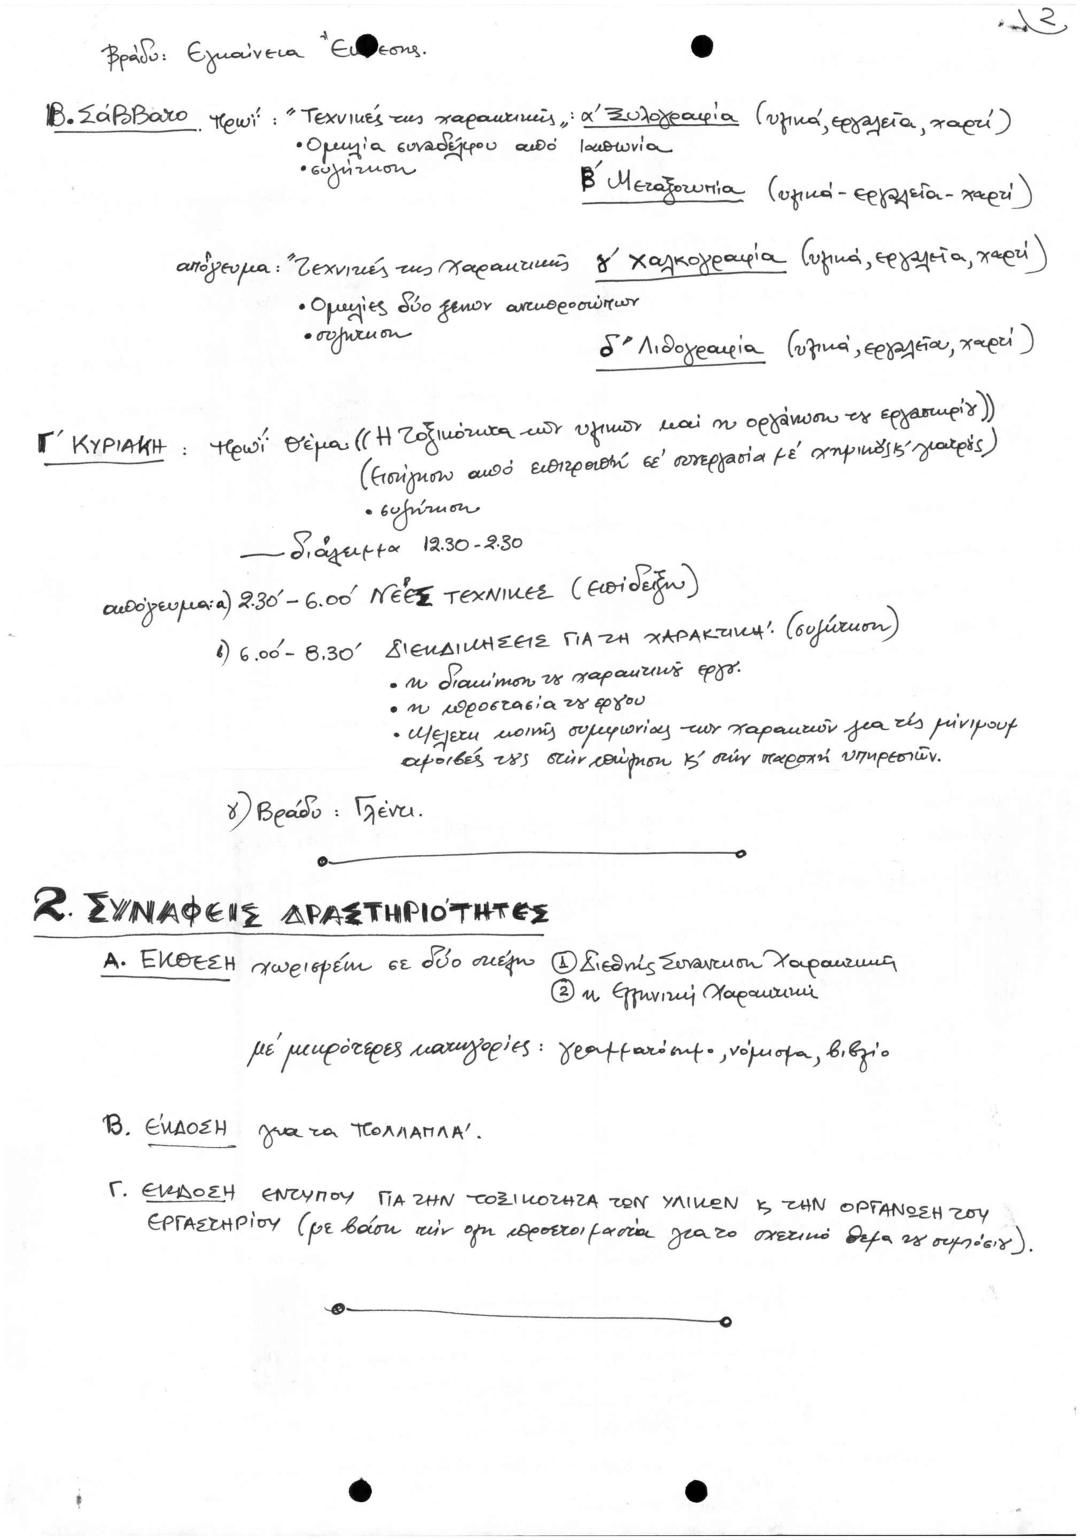 2
Βράδυ: Εγκαίνεια Έκθεσης.
Β. ΣάΒΒατο πρωί: "Τεχνικές της χαρακτικής": α' Ξυλογραφία (υλικά, εργαλεία, χαρτί)
• Ομιλία συναδέλφου από Ιαπωνία
• συζήτηση
Β' Μεταξοτυπία (υλικά - εργαλεία - χαρτί)
απόγευμα: "Τεχνικές της Χαρακτικής γ' Χαλκογραφία (υλικά, εργαλεία, χαρτί)
• Ομιλίες δύο ξενων αντιπροσώπων
• συζητηση
δ' Λιθογραφία (υλικά, εργαλεία, χαρτί)
Γ' ΚΥΡΙΑΚΗ: πρωί θέμα ((Η Τοξικότητα των υλικών και η οργάνωση του εργαστηρίου))
(Εισήγηση από επιτροπή σε συνεργασία μέ χημικούς κ' γιατρούς)
• συζήτηση
— διάλειμμα 12.30 - 2.30
απόγευμα: α) 2.30' - 6.00' ΝΕΕΣ ΤΕΧΝΙΚΕΣ (επίδειξη)
β) 6.00' - 8.30' ΔΙΕΚΔΙΚΗΣΕΙΣ ΓΙΑ ΤΗ ΧΑΡΑΚΤΙΚΗ. (συζήτηση)
• η διακίνηση του χαρακτικού εργου.
• η προστασία του έργου
• Μελετη κοινής συμφωνίας των χαρακτών για τίς μίνιμουμ
αμοιβές τους στήν πώληση κ' στήν παροχή υπηρεσιών.
γ) Βράδυ: Γλέντι.
2. ΣΥΝΑΦΕΙΣ ΔΡΑΣΤΗΡΙΟΤΗΤΕΣ
Α. ΕΚΘΕΣΗ χωρισμένη σε δύο σκέλη ① Διεθνής Συναντηση Χαρακτικής
② η Ελληνική Χαρακτική
μέ μικρότερες κατηγορίες: γραμματόσημο, νόμισμα, βιβλίο
Β. ΕΚΔΟΣΗ για τα ΠΟΛΛΑΠΛΑ'.
Γ. ΕΚΔΟΣΗ ΕΝΤΥΠΟΥ ΓΙΑ ΤΗΝ ΤΟΞΙΚΟΤΗΤΑ ΤΩΝ ΥΛΙΚΩΝ κ ΤΗΝ ΟΡΓΑΝΩΣΗ ΤΟΥ
ΕΡΓΑΣΤΗΡΙΟΥ (με βάση τήν όλη προετοιμασία για το σχετικό θέμα του συμπόσιου).